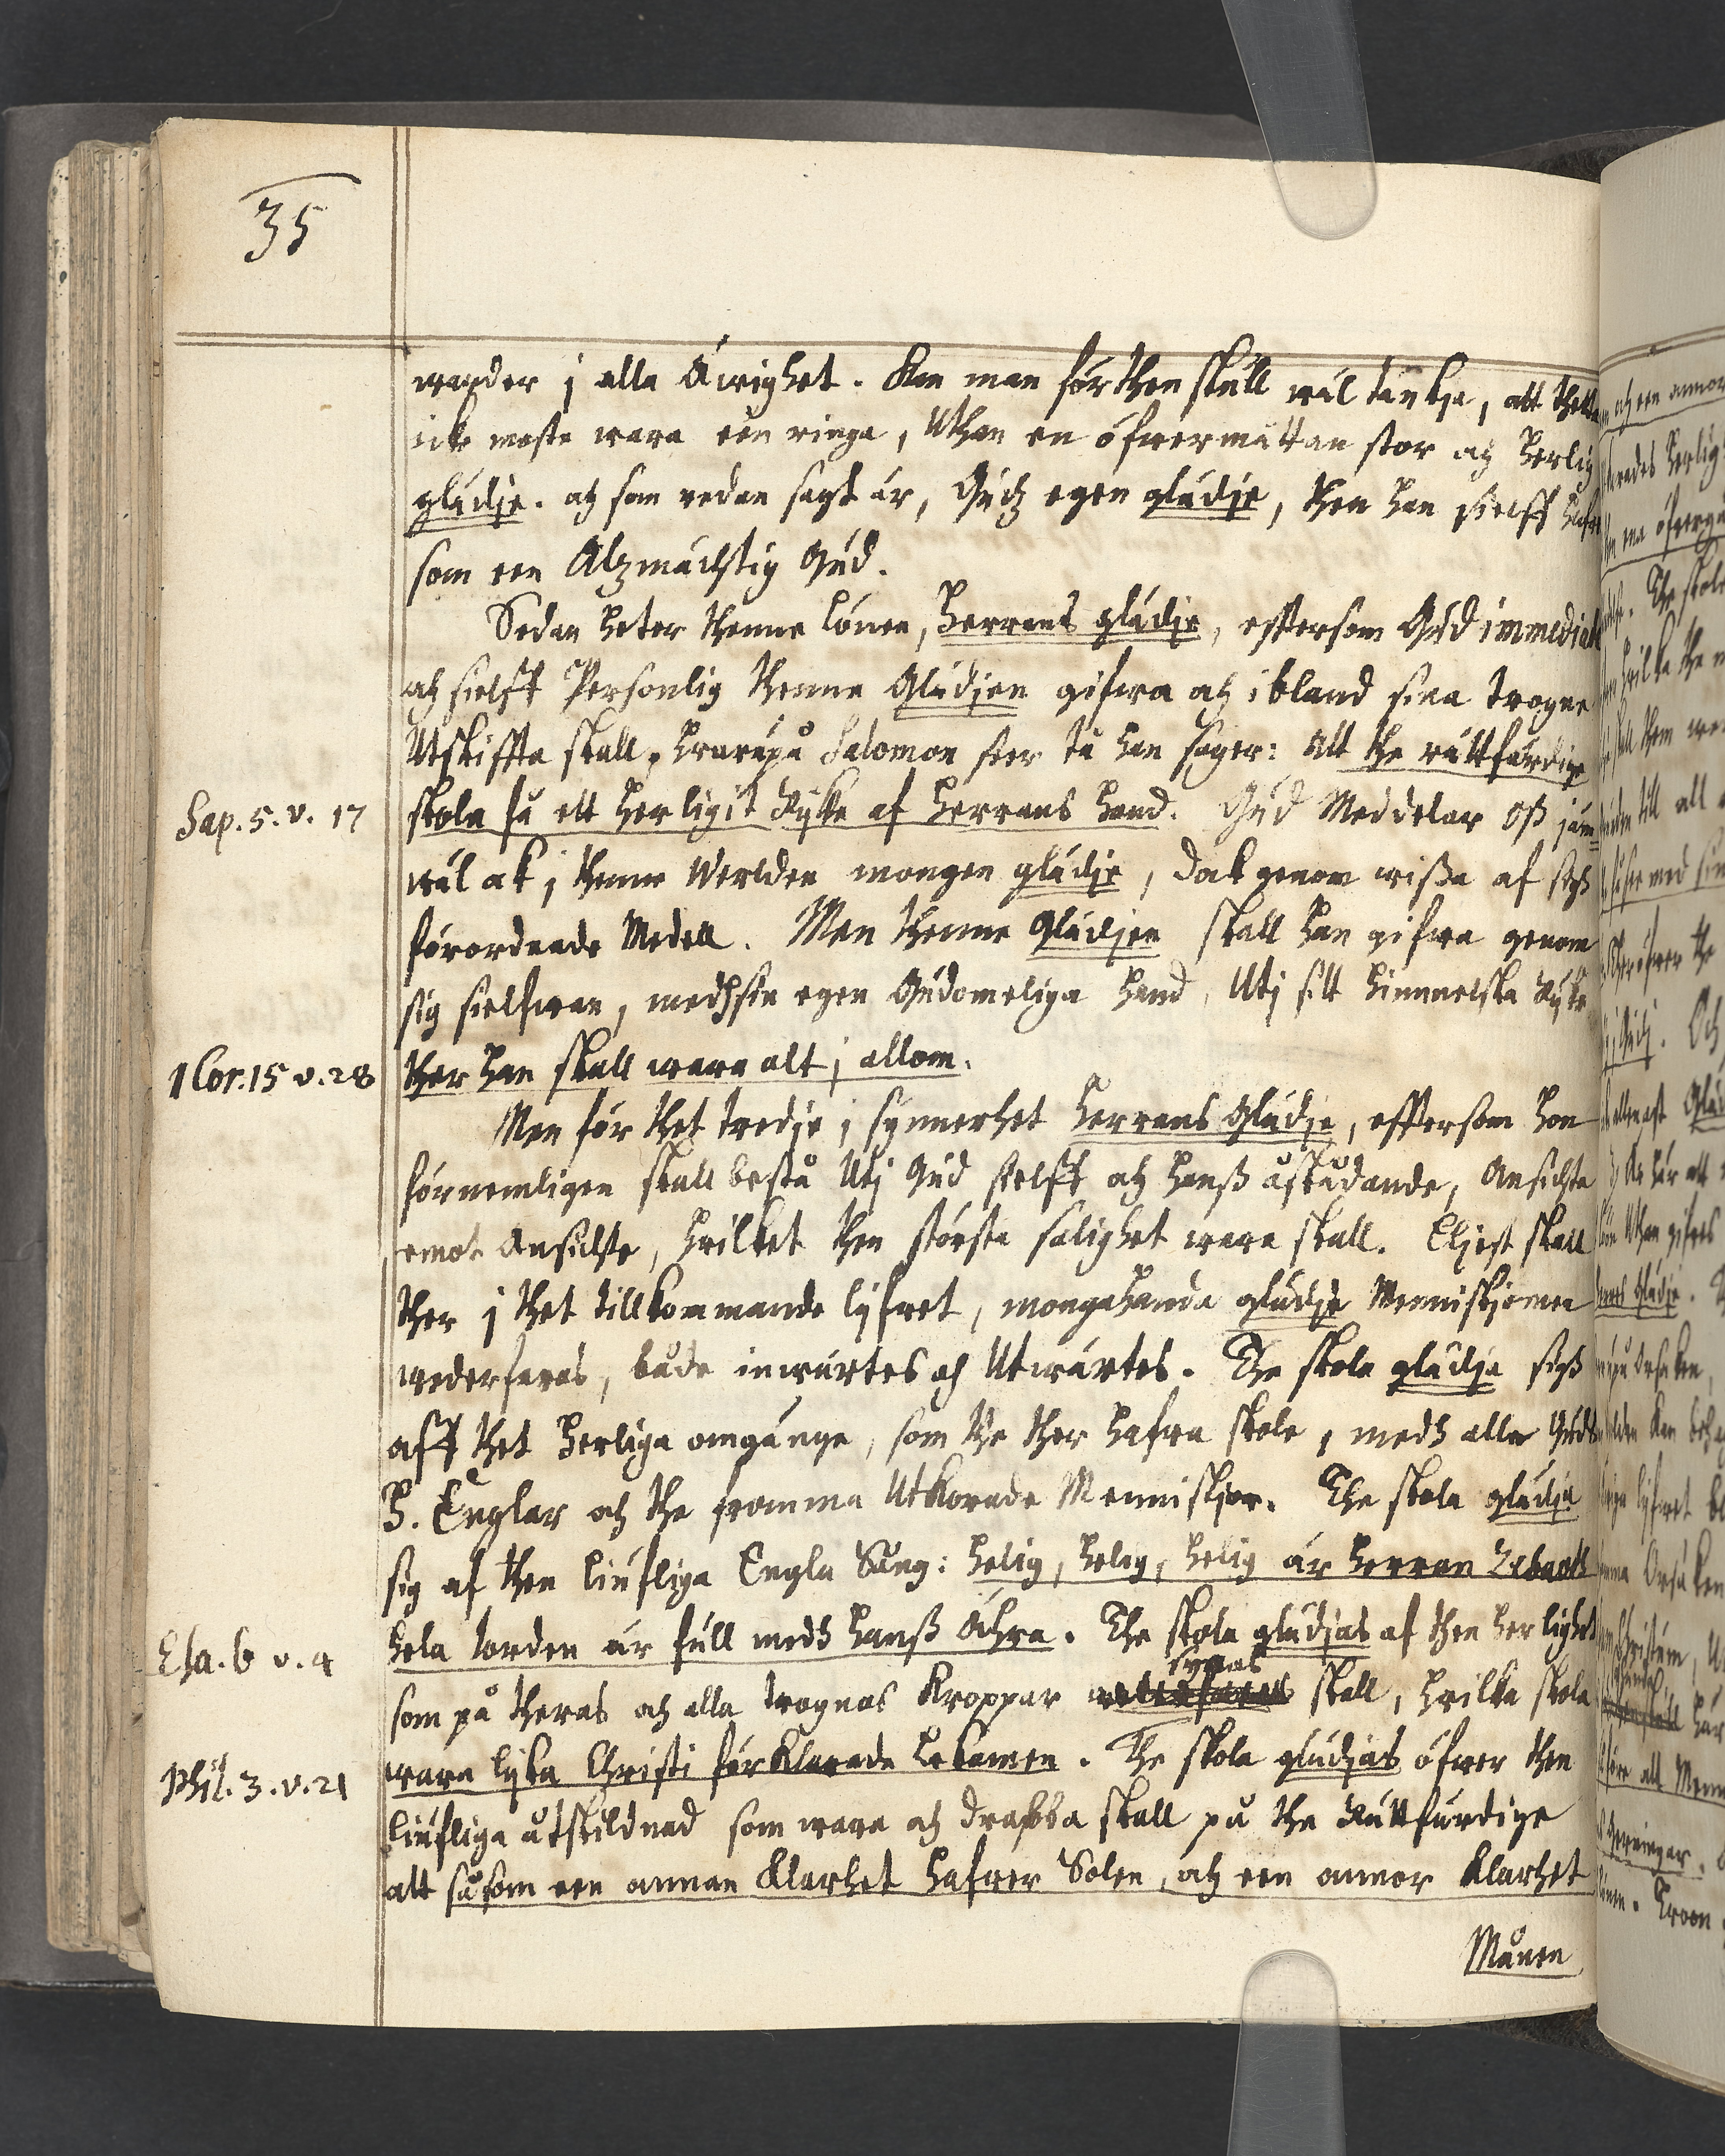 35
warder i alla Äwighet. Kan man förthenskull wäl tänkja, att thetta
icke moste wara een ringa, Uthan en öfwermåttan stor och herlig
glädje. och som redan sagt är, Gudz egen glädje, then han sielff hafwer
som een Alzmächtig Gud.
Sedan heter thenne Lönen, Herrans glädje, efftersom Gud immediatè
och sielff Personlig thenne Glädjen gifwa och ibland sina trogne
Utskiffta skall, hwarupå Salomon seer tå han säger: Att the rättfärdige
Sap. 5. v. 17
skola få ett herligit Rijke af Herrans hand. Gud Meddelar oß jäm
wäl ok i thenne Werlden mongen glädje, dok genom wißa af sigh
förordnade Medell. Men thenne Glädjen skall han gifwa genom
sig sielfwan, medh sin egen Gudomeliga hand, Utj sitt himmelska Rijke
1 Cor. 15 v. 28
ther han skall wara alt i allom.
Men för thet tredje i synnerhet Herrans Glädje, efftersom hon
förnemligen skall bestå Utj Gud sielff och hanß åskådande, Ansichte
emot Ansichte, hvilket then största salighet wara skall. Eljest skall
ther i thet tillkommande lijfwet, mongahanda glädje Menniskjomen
wederfaras, både inwärtes och Utwärtes. The skola glädja sigh
aff thet herliga omgänge, som the ther hafwa skole, medh alla Gudz
H. Englar och the fromma Utkorade Menniskjor. The skola glädja
sig af then liufliga Engla Sång: helig, helig, helig är Herren Zebaoth
Esa. 6 v. 4
hela Jorden är full medh hanß Ähra. The skola glädjas af then herlighet
synas
som på theras och alla trognas Kroppar wederfaras skall, hvilka skola
Phil. 3. v. 21
wara lijka Christi förklarade Lekamen. The skola glädjas öfwer then
liufliga åtskildnad som wara och drabba skall på the Rättfärdige
att såsom een annan Klarhet hafwer Solen, och een annor Klarhet
Månen